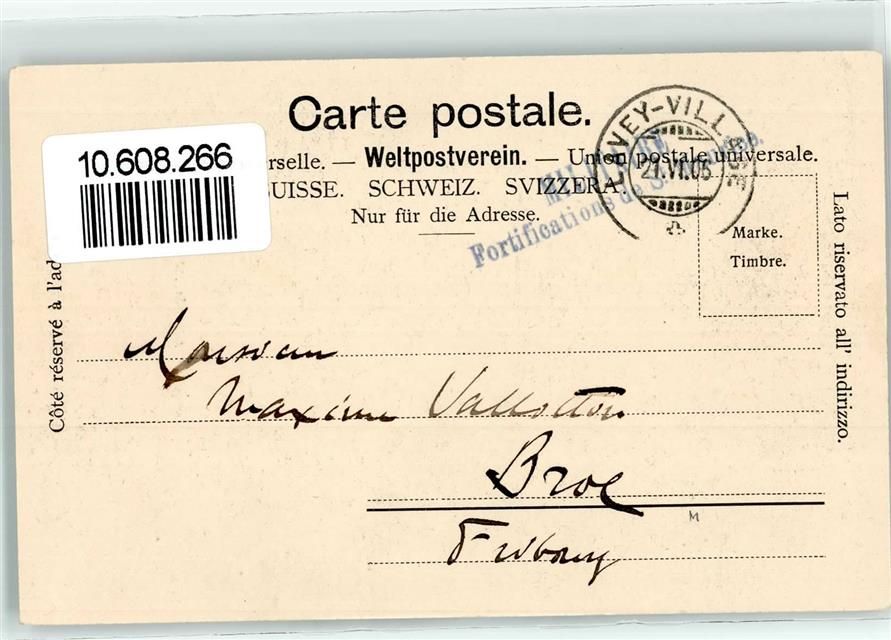 Carte postale.
10.608.266
erselle. — Weltpostverein. — Union postale universale.
UISSE. SCHWEIZ. SVIZZERA.
Nur für die Adresse.
VEY-VILLAGE
21.VI.05
MILITAIRE
Fortifications de St. Maurice.
Marke.
Timbre.
Côté réservé à l'ad
Lato riservato all' indirizzo.
Monsieur
Maxime Vallotton
Broc
M
Fribourg